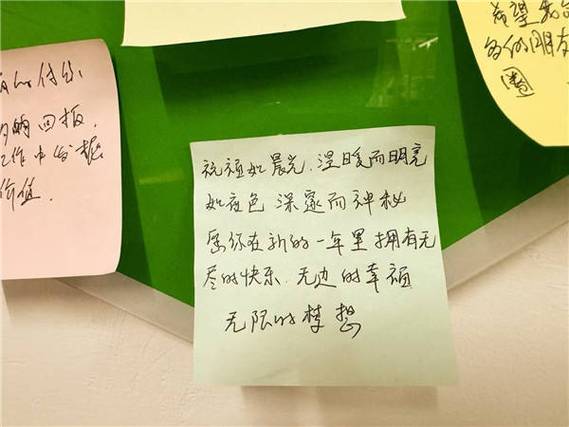 付出
回报.
工作中发掘
价值.
祝福如晨光.温暖而明亮
如夜色深邃而神秘
愿你在新的一年里拥有无
尽的快乐.无边的幸福
无限的梦想
希望
朋友